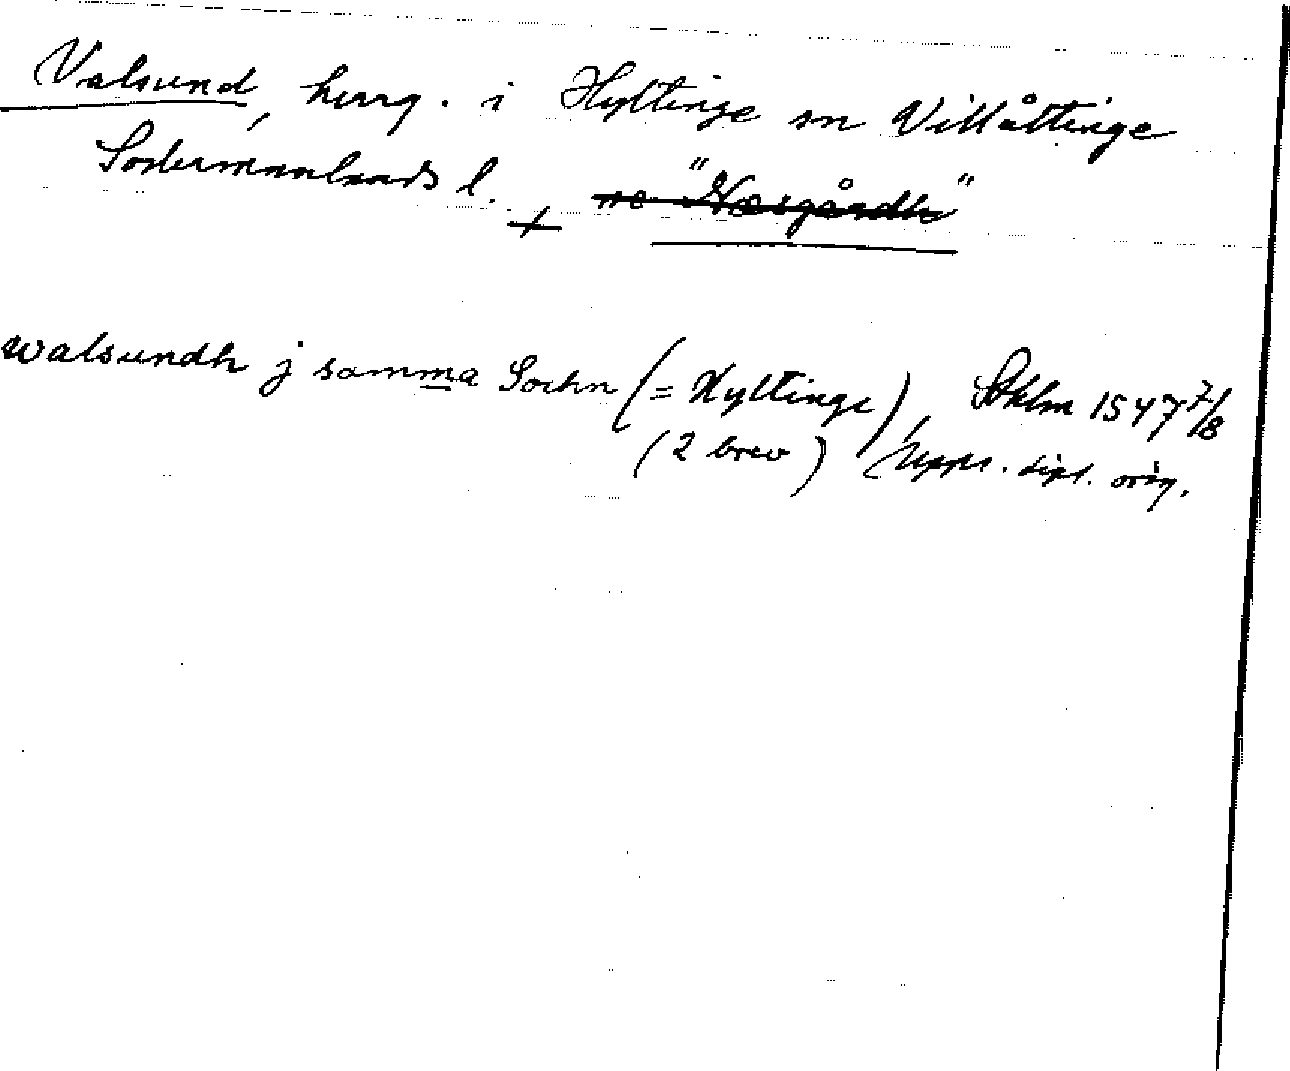 Valsund, herrg. i Hyltinge sn Villåttinge
Södermanlands l. + "Næsgårdh"
walsundh j samma Sochn (= Hyltinge), Sthlm 1547 7/8
(2 brev) Upps. dipl. orig.